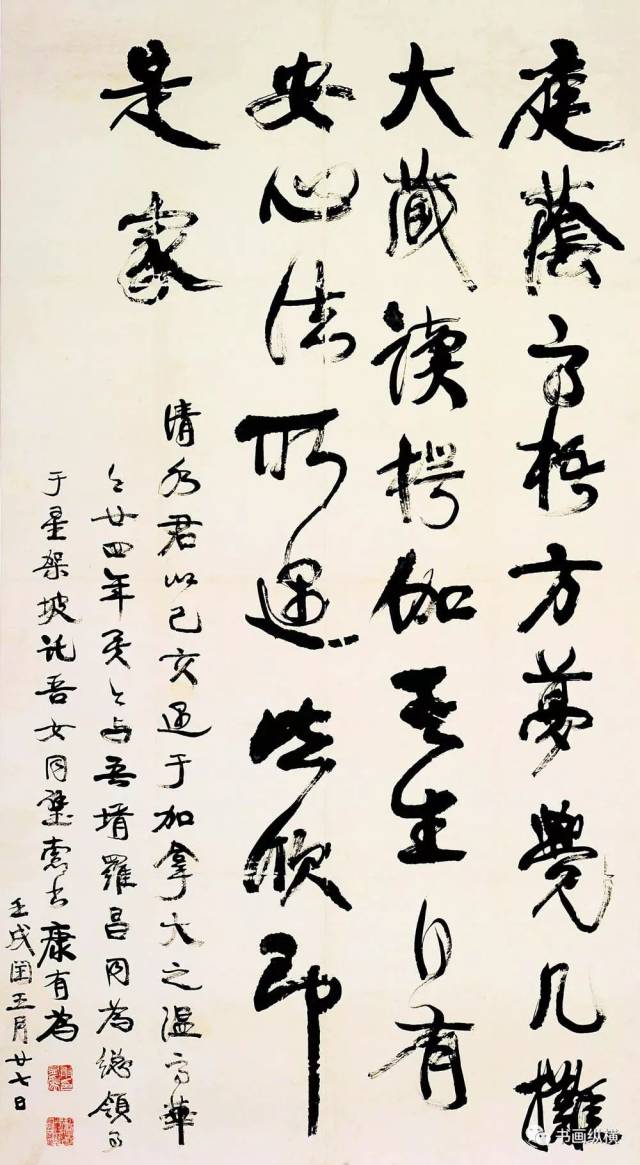 庭蔭高梧方夢覺几攤
大藏讀楞伽吾生自有
安心法所遇皆欣即
是家
清水君以己亥遇于加拿大之温高華
今廿四年矣今与吾壻羅昌同為總領事
于星架坡託吾女同璧索書康有為
壬戌閏五月廿七日
书画纵横